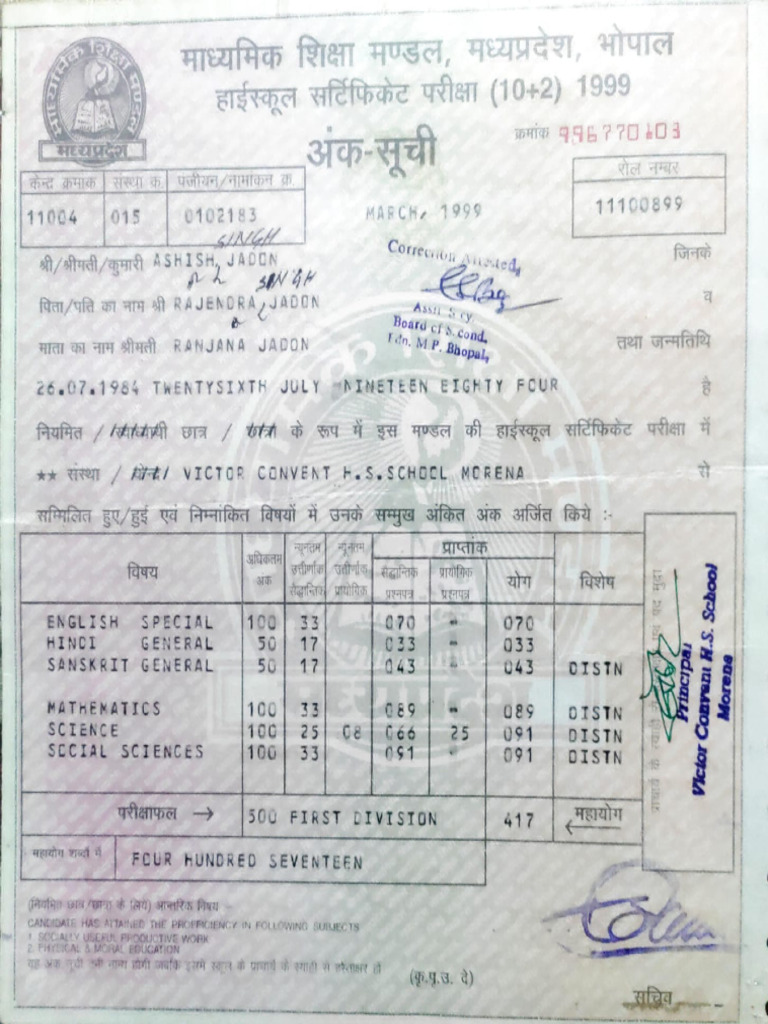 माध्यमिक शिक्षा मण्डल, मध्यप्रदेश, भोपाल
हाईस्कूल सर्टिफिकेट परीक्षा (10+2) 1999
माध्यमिक शिक्षा मण्डल
मध्यप्रदेश
अंक-सूची
क्रमांक 996770103
केन्द्र क्रमाक संस्था क्र. पंजीयन/नामांकन क्र.
रोल नम्बर
11004 015 0102183
MARCH, 1999
11100899
SINGH
श्री/श्रीमती/कुमारी ASHISH JADON जिनके
Correction Attested,
SINGH
पिता/पति का नाम श्री RAJENDRA JADON व
Board of S. cond.
Edn. M.P. Bhopal,
माता का नाम श्रीमती RANJANA JADON तथा जन्मतिथि
26.07.1984 TWENTYSIXTH JULY NINETEEN EIGHTY FOUR है
नियमित / छात्र / के रूप में इस मण्डल की हाईस्कूल सर्टिफिकेट परीक्षा में
** संस्था / VICTOR CONVENT H.S.SCHOOL MORENA से
सम्मिलित हुए/हुई एवं निम्नांकित विषयों में उनके सम्मुख अंकित अंक अर्जित किये :-
विषय अधिकतम अंक न्यूनतम उत्तीर्णांक सैद्धान्तिक न्यूनतम उत्तीर्णांक प्रायोगिक प्राप्तांक सैद्धान्तिक प्रश्नपत्र प्रायोगिक प्रश्नपत्र योग विशेष
ENGLISH SPECIAL 100 33 070 - 070
HINDI GENERAL 50 17 033 - 033
SANSKRIT GENERAL 50 17 043 - 043 DISTN
MATHEMATICS 100 33 089 - 089 DISTN
SCIENCE 100 25 08 066 25 091 DISTN
SOCIAL SCIENCES 100 33 091 - 091 DISTN
परीक्षाफल → 500 FIRST DIVISION 417 महायोग ←
महायोग शब्दों में FOUR HUNDRED SEVENTEEN
Principal
Victor Convent H.S. School
Morena
(नियमित छात्र/छात्रा के लिये) आन्तरिक विषय
CANDIDATE HAS ATTAINED THE PROFICIENCY IN FOLLOWING SUBJECTS
1. SOCIALLY USEFUL PRODUCTIVE WORK
2. PHYSICAL & MORAL EDUCATION
यह अंक सूची तभी मान्य होगी जबकि इसमें स्कूल के प्राचार्य के स्याही से हस्ताक्षर हों
(कृ.प.उ. दे)
सचिव